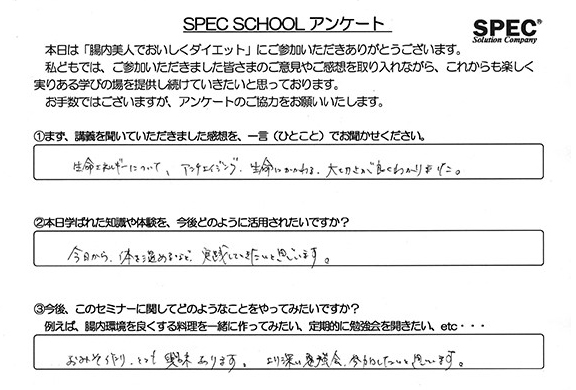 SPEC SCHOOL アンケート
SPEC®
Solution Company
本日は「腸内美人でおいしくダイエット」にご参加いただきありがとうございます。
私どもでは、ご参加いただきました皆さまのご意見やご感想を取り入れながら、これからも楽しく
実りある学びの場を提供し続けていきたいと思っております。
お手数ではございますが、アンケートのご協力をお願いいたします。
①まず、講義を聞いていただきました感想を、一言（ひとこと）でお聞かせください。
生命エネルギーについて、アンチエイジング、生命にかかわる、大切さが良くわかりました。
②本日学ばれた知識や体験を、今後どのように活用されたいですか？
今日から、体を温めるなど、実践していきたいと思います。
③今後、このセミナーに関してどのようなことをやってみたいですか？
例えば、腸内環境を良くする料理を一緒に作ってみたい、定期的に勉強会を開きたい、etc・・・
おみそ作り、とても興味あります。より深い勉強会、参加したいと思います。